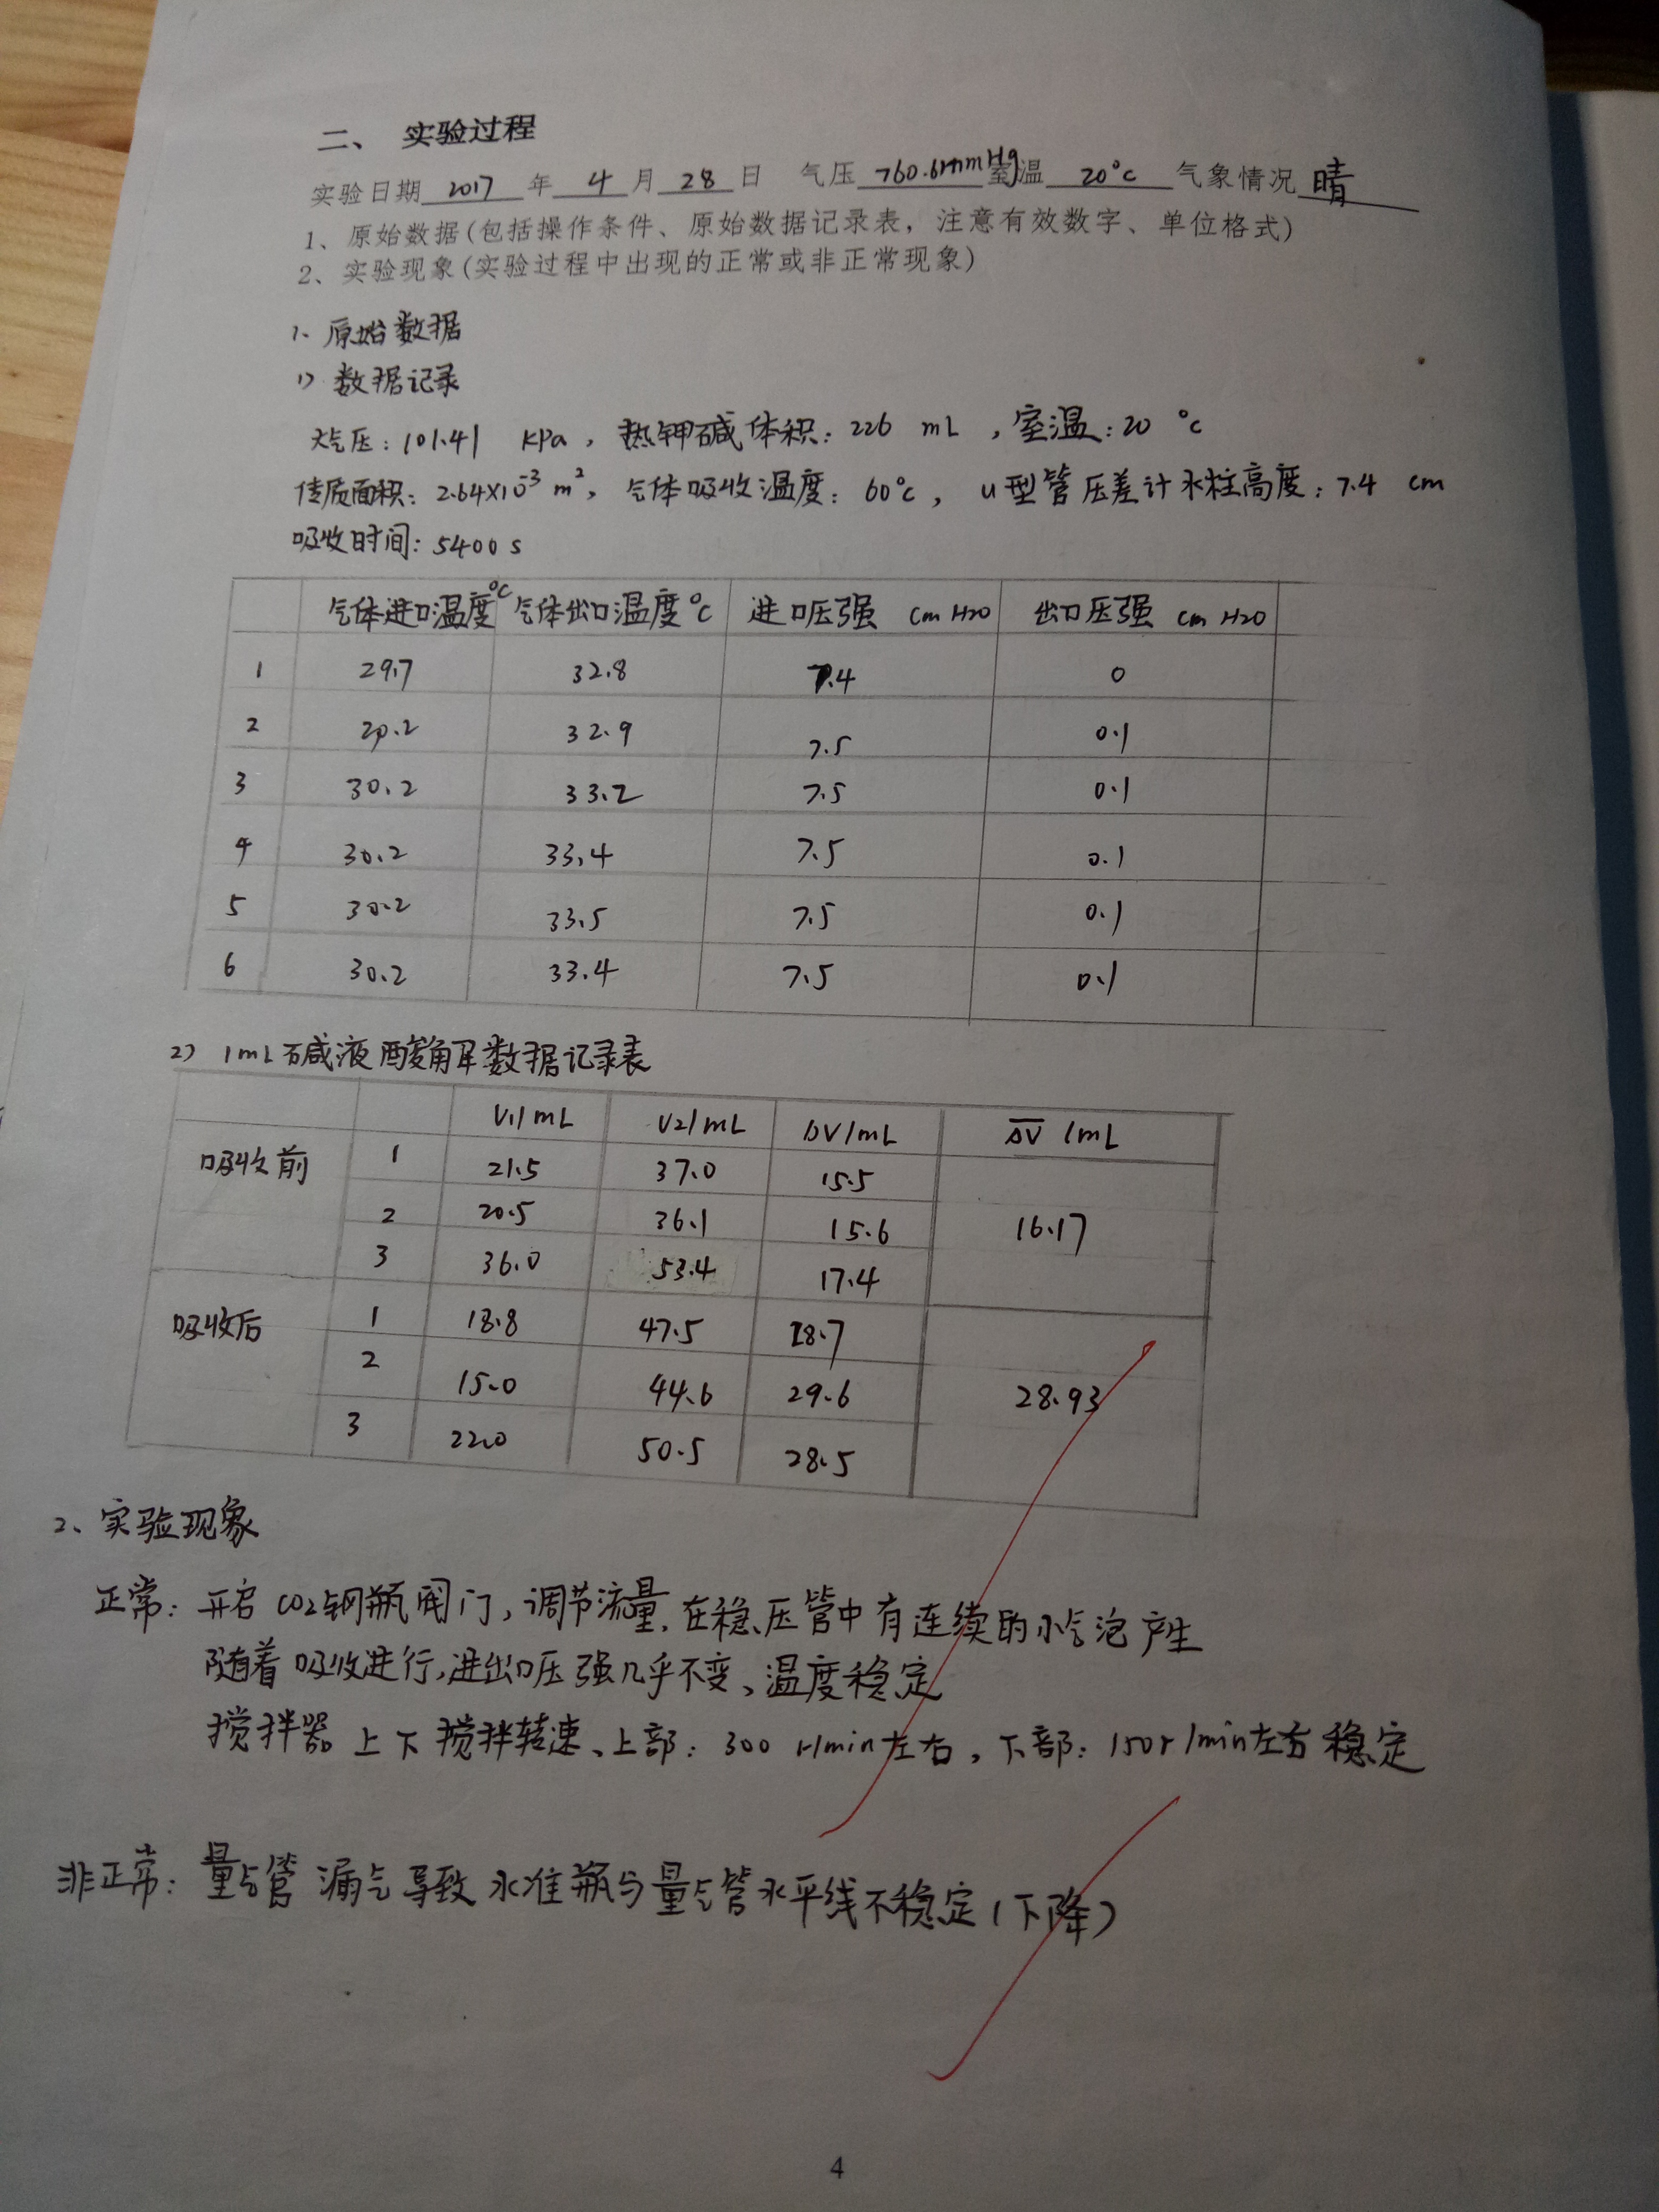 二、 实验过程
实验日期 2017 年 4 月 28 日 气压 760.6mmHg 室温 20°C 气象情况 晴
1、原始数据(包括操作条件、原始数据记录表，注意有效数字、单位格式)
2、实验现象(实验过程中出现的正常或非正常现象)
1、原始数据
1) 数据记录
大气压：101.41 KPa，热钾碱体积：226 mL，室温：20 °C
传质面积：2.64×10⁻³ m²，气体吸收温度：60°C，U型管压差计水柱高度：7.4 cm
吸收时间：5400 s
气体进口温度°C 气体出口温度°C 进口压强 cm H2O 出口压强 cm H2O
1 29.7 32.8 7.4 0
2 32.9 7.5 0.1
3 30.2 33.2 7.5 0.1
4 30.2 33.4 7.5 0.1
5 30.2 33.5 7.5 0.1
6 30.2 33.4 7.5 0.1
2) 1mL碱液酸解数据记录表
V1/mL V2/mL ΔV/mL ΔV̅ /mL
吸收前 1 21.5 37.0 15.5
2 20.5 36.1 15.6 16.17
3 36.0 53.4 17.4
吸收后 1 18.8 47.5 28.7
2 15.0 44.6 29.6 28.93
3 22.0 50.5 28.5
2、实验现象
正常：开启CO2钢瓶阀门，调节流量，在稳压管中有连续的小气泡产生
随着吸收进行，进出口压强几乎不变、温度稳定
搅拌器上下搅拌转速、上部：300 r/min左右，下部：150r/min左右稳定
非正常：量气管漏气导致水准瓶与量气管水平线不稳定(下降)
4